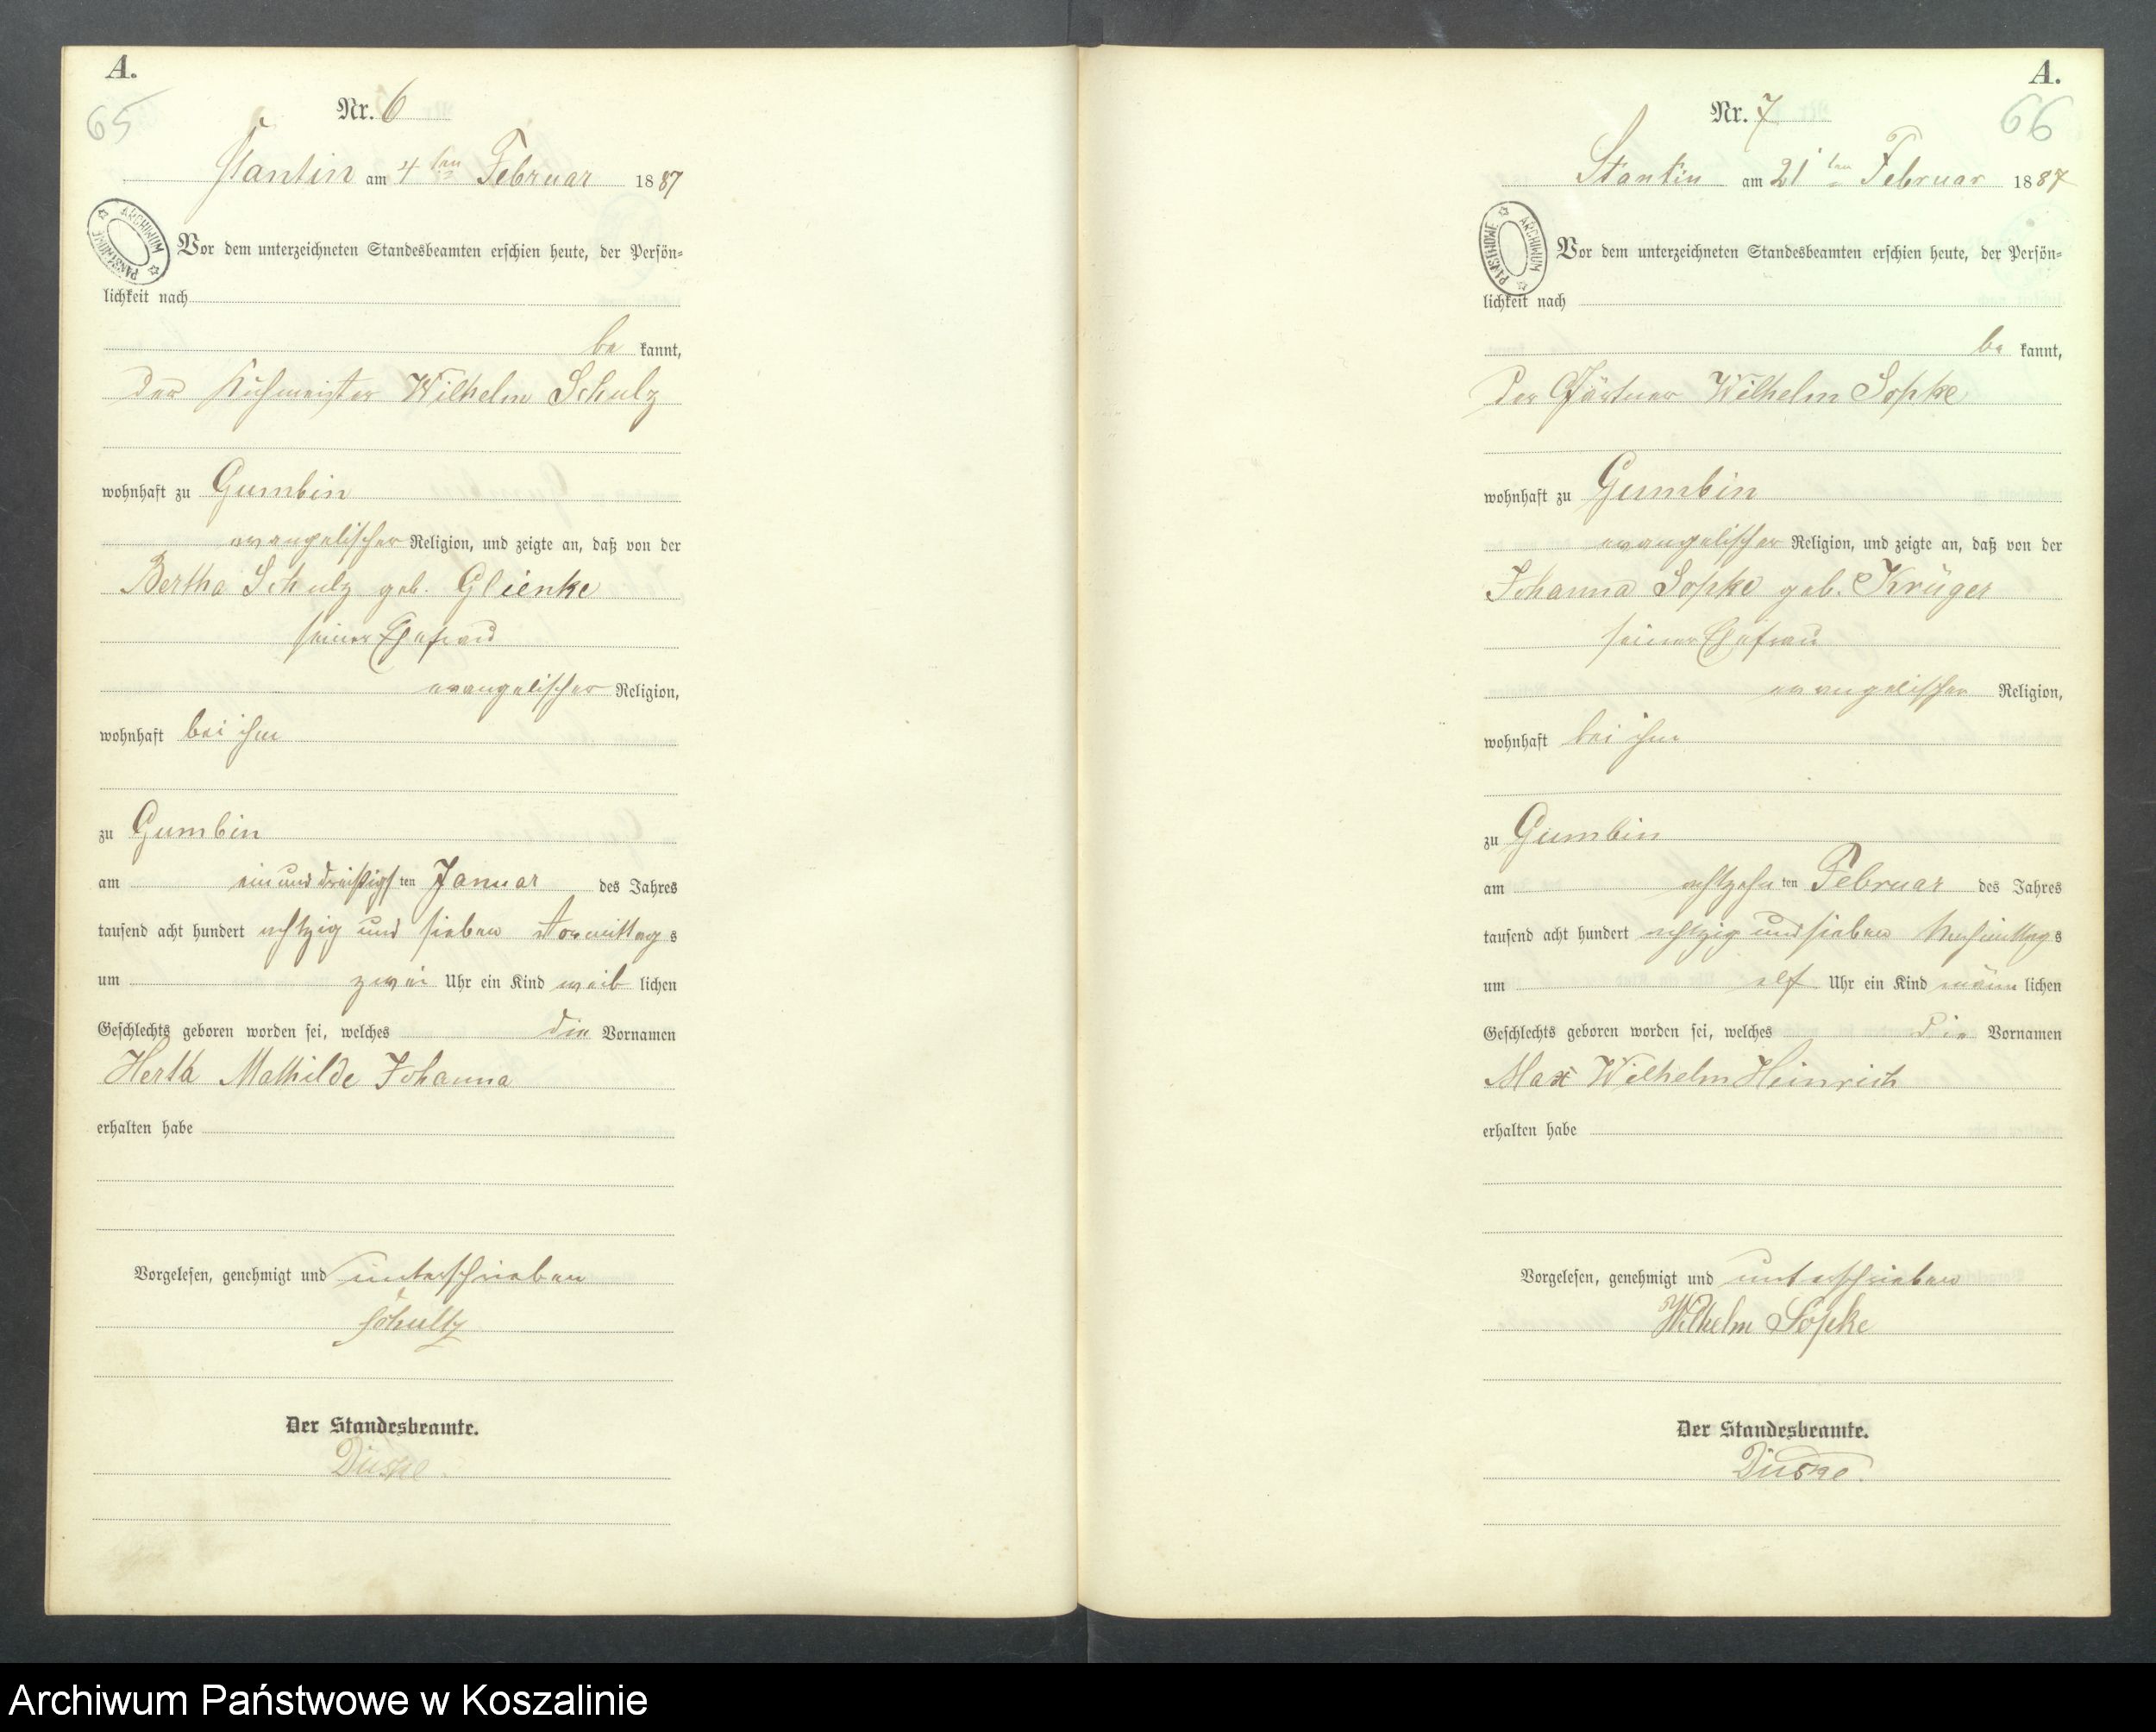 A.
65
Nr. 6
Stantin am 4ten Februar 1887
ARCHIWUM PAŃSTWOWE
Vor dem unterzeichneten Standesbeamten erschien heute, der Persön-
lichkeit nach
be kannt,
der Kuhmeister Wilhelm Schulz
wohnhaft zu Gumbin
evangelischer Religion, und zeigte an, daß von der
Bertha Schulz geb. Glienke
seiner Ehefrau
evangelischer Religion,
wohnhaft bei ihm
zu Gumbin
am ein und dreißigsten Januar des Jahres
tausend acht hundert achtzig und sieben Vormittags
um zwei Uhr ein Kind weiblichen
Geschlechts geboren worden sei, welches die Vornamen
Hertha Mathilde Johanna
erhalten habe
Vorgelesen, genehmigt und unterschrieben
Schultz
Der Standesbeamte.
A.
66
Nr. 7
Stantin am 21ten Februar 1887
ARCHIWUM PAŃSTWOWE
Vor dem unterzeichneten Standesbeamten erschien heute, der Persön-
lichkeit nach
be kannt,
der Gärtner Wilhelm Sopke
wohnhaft zu Gumbin
evangelischer Religion, und zeigte an, daß von der
Johanna Sopke geb. Krüger
seiner Ehefrau
evangelischer Religion,
wohnhaft bei ihm
zu Gumbin
am achtzehnten Februar des Jahres
tausend acht hundert achtzig und sieben Nachmittags
um elf Uhr ein Kind männlichen
Geschlechts geboren worden sei, welches die Vornamen
Max Wilhelm Heinrich
erhalten habe
Vorgelesen, genehmigt und unterschrieben
Wilhelm Sopke
Der Standesbeamte.
Archiwum Państwowe w Koszalinie